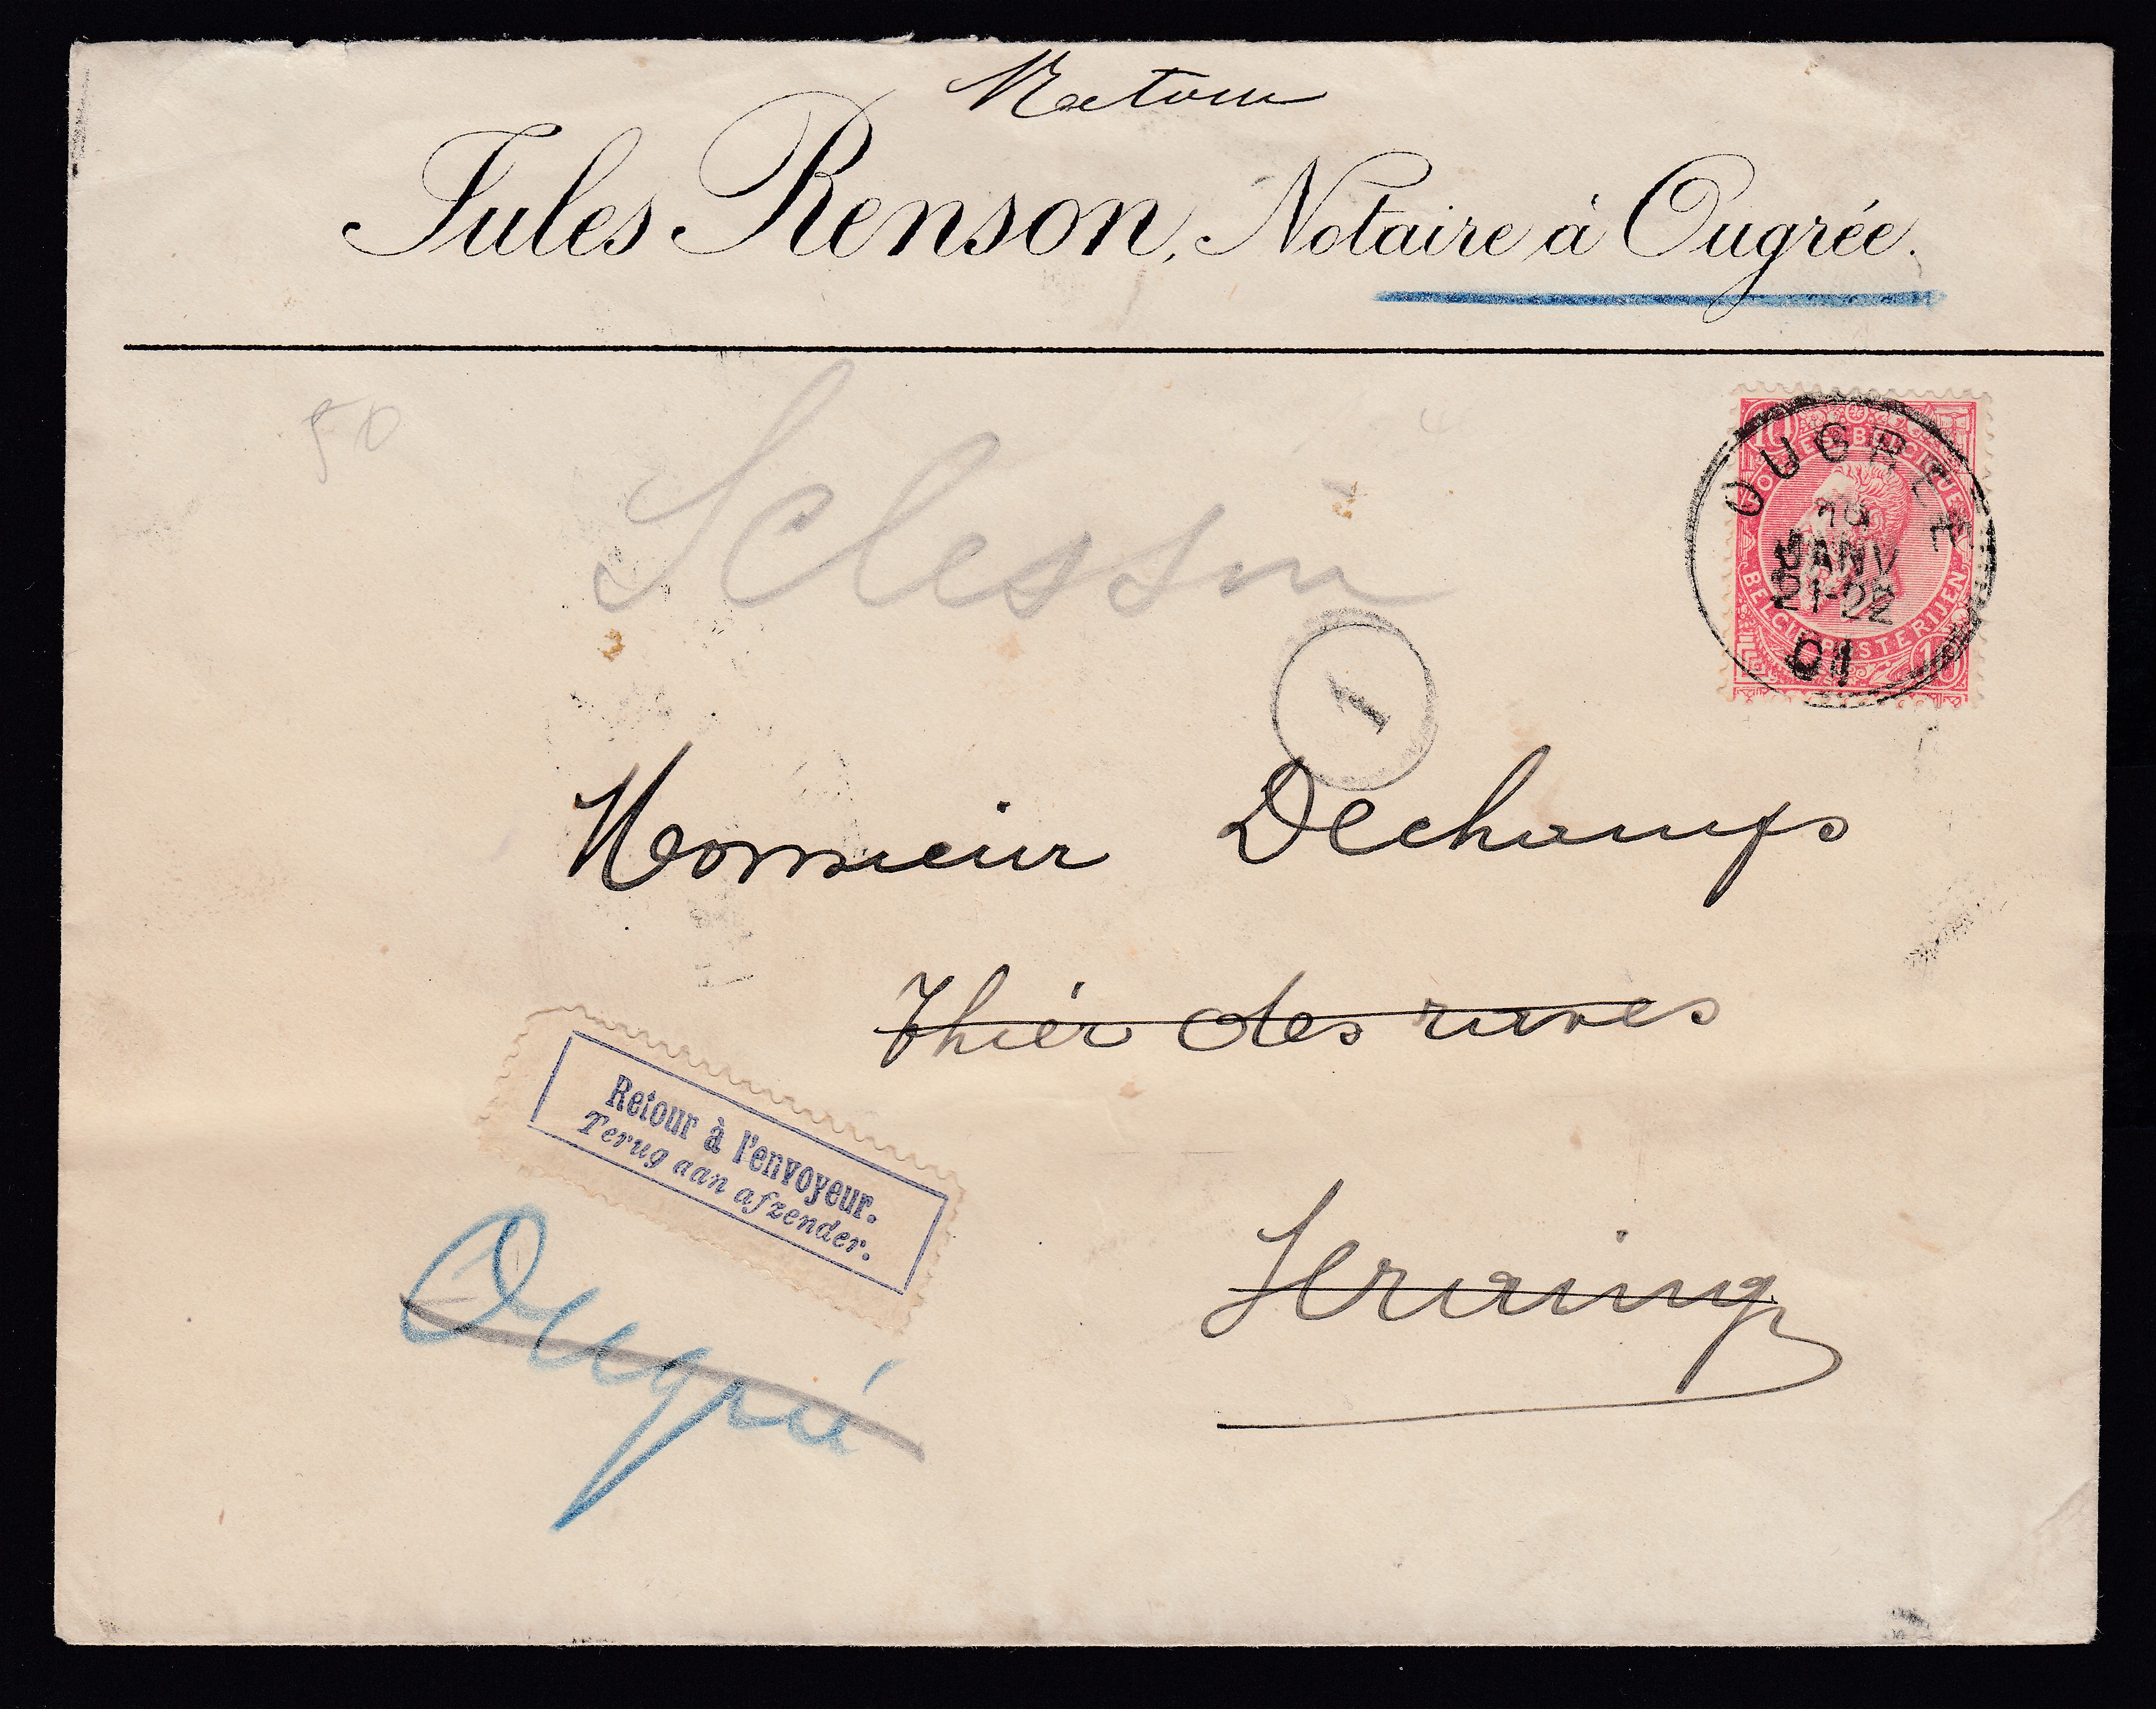 Retour
Jules Renson, Notaire à Ougrée.
50
Sclessin
10
POSTES BELGIQUE
BELGIE POSTERIJEN
10
OUGRÉE
19
JANV
21-22
01
1
Monsieur Dechamps
Thier des raves
Retour à l'envoyeur.
Terug aan afzender.
Seraing
Ougrée